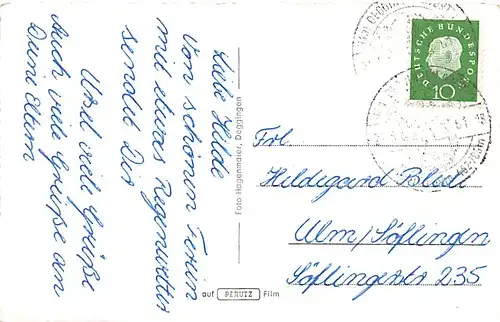 Liebe Hilde
Von schönen Ferien
mit etwas Regenwetter
sendet Dir
Ursel viele Grüße
Auch viele Grüße an
Deine Eltern
Foto Hagenmaier, Deggingen
auf PERUTZ Film
DEUTSCHE BUNDESPOST
10
Frl.
Hildegard
Ulm/Söflingen
Söflingerstr 235